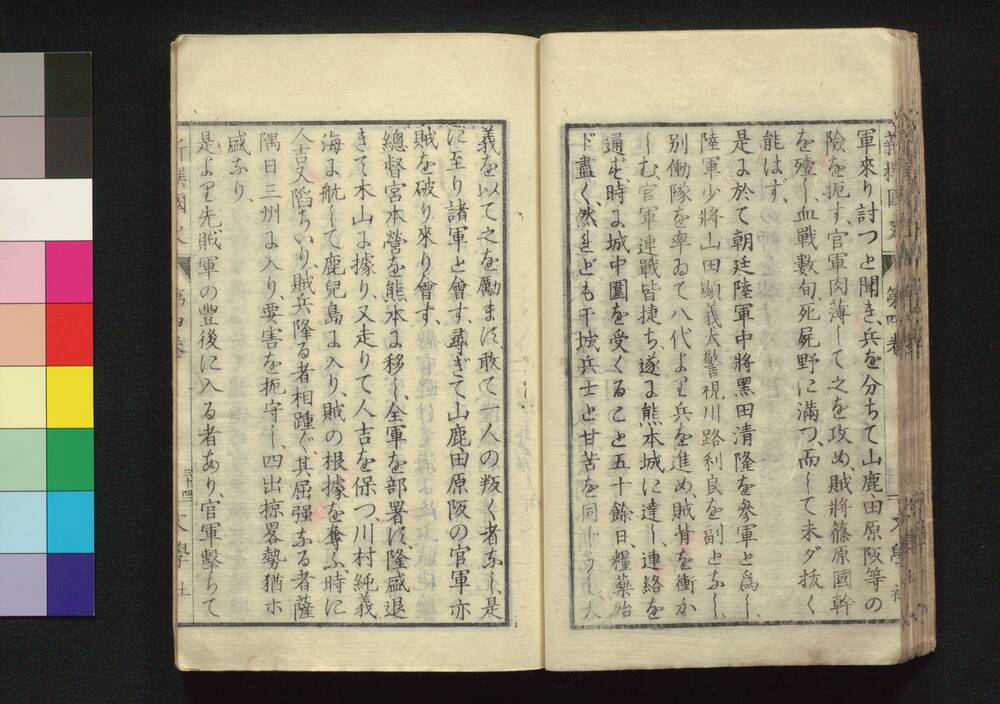 軍來り討つと聞き、兵を分ちて山鹿田原阪等の
險を扼す、官軍肉薄して之を攻め、賊將篠原國幹
を殪し、血戰數旬、死屍野に滿つ、而して未ダ拔く
能はず、
是に於て朝廷陸軍中將黑田清隆を參軍と爲し、
陸軍少將山田顯義大警視川路利良を副となし、
別働隊を率ゐて八代より兵を進め、賊背を衝か
しむ、官軍連戰皆捷ち、遂に熊本城に達し、連絡を
通ず、時に城中圍を受くること五十餘日、糧藥殆
ド盡く、然れども干城兵士と甘苦を同
義を以て之を勵ます、敢て一人の叛く者なし、是
に至り諸軍と會す、尋ぎて山鹿田原阪の官軍亦
賊を破り來り會す、
總督宮本營を熊本に移し、全軍を部署す、隆盛退
きて木山に據り、又走りて人吉を保つ川村純義
海に航して鹿兒島に入り、賊の根據を奪ふ、時に
人吉又陷ちいり、賊兵降る者相踵ぐ、其屈强なる者薩
隅日三州に入り、要害を扼守し、四出掠畧勢猶ホ
盛なり、
是より先賊軍の豐後に入る者あり、官軍擊ちて
第四卷
三十四
文學社